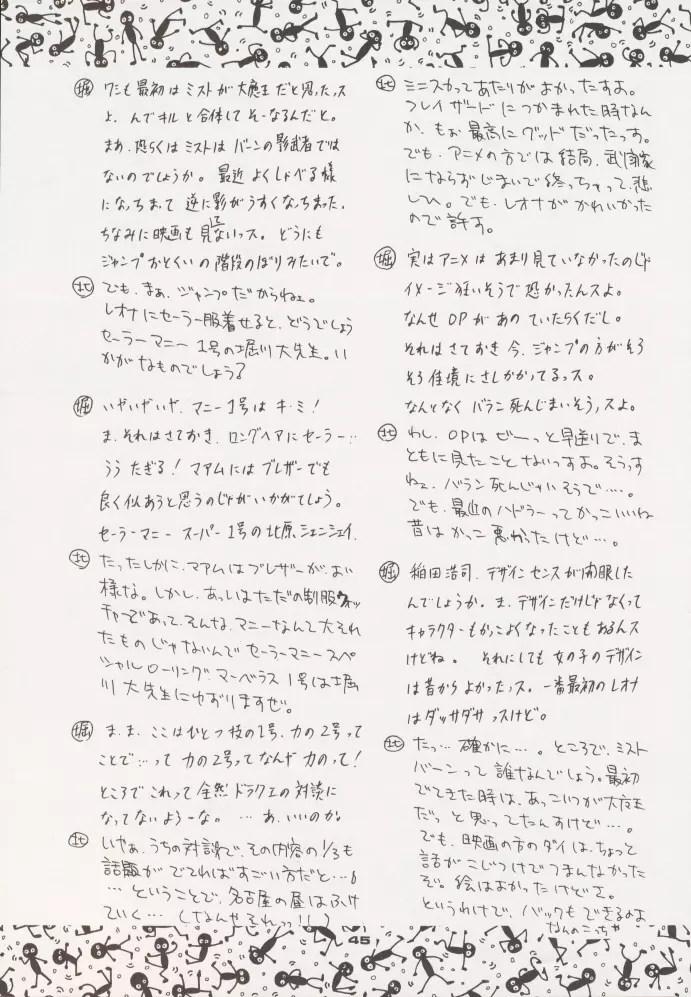 ㊗ミニスカってあたりがよかったすよ。
フレイザードにつかまれた時なん
か、もぉ最高にグッドだったっす。
でも、アニメの方では結局、武闘家
にならずじまいで終っちゃって、悲
しひ。でも、レオナがかわいかった
ので許す。
堀 実はアニメはあまり見ていなかったのじゃ
イメージ狂いそうで恐かったんスよ。
なんせOPがあのていたらくだし。
それはさておき今、ジャンプの方がそろ
そろ佳境にさしかかってるっス。
なんとなくバラン死んじまいそうっスよ。
北 わし、OPはぜーっと早送りで、ま
ともに見たことないっすよ。そうっす
ねェ、バラン死んじゃいそうで…。
でも、最近のハドラーってかっこいいね
昔はかっこ悪かったけど…。
堀 稲田浩司、デザインセンスが開眼した
んでしょうか。ま、デザインだけじゃなくって
キャラクターもかっこよくなったこともあるんス
けどね。それにしても女の子のデザイン
は昔からよかったっス。一番最初のレオナ
はダッサダサっスけど。
北 たっ…確かに…。ところで、ミスト
バーンって誰なんでしょう。最初
でてきた時は、あっこいつが大魔王
だっと思ってたんすけど…。
でも、映画の方のダイは、ちょっと
話がこじつけでつまんなかった
ぞ。絵はよかったけどさ。
というわけで、バックもできるのよ
なんのこっちゃ
堀 ワシも最初はミストが大魔王だと思ったっス
よ。んでキルと合体してそーなるんだと。
まあ、恐らくはミストはバーンの影武者では
ないのでしょうか。最近よくしゃべる様
になっちまって逆に影がうすくなっちまった。
ちなみに映画も見てないっス。どうにも
ジャンプおとくいの階段のぼりみたいで。
北 でも、まぁ、ジャンプだからねェ。
レオナにセーラー服着せると、どうでしょう
セーラーマニー1号の堀川大先生。い
かがなものでしょう?
堀 いやいやいや、マニー1号はキ・ミ!
ま、それはさておき、ロングヘアにセーラー…
うう たぎる! マァムにはブレザーでも
良く似あうと思うのじゃがいかがでしょう。
セーラーマニースーパー1号の北原シェンシェイ。
北 たったしかに、マァムはブレザーが、よい
様な。しかし、あっしはただの制服ウォッ
チャーであって、そんな、マニーなんて大それ
たものじゃないんでセーラーマニースペ
シャルローリングマーベラス1号は堀
川大先生にゆずりますぜ。
堀 ま、ま、ここはひとつ技の1号、力の2号って
ことで…って力の2号ってなんや力のって!
ところでこれって全然ドラクエの対談に
なってないよーな。…あ、いいのか。
北 いやぁ、うちの対談で、その内容の1/3も
話題がでてればすごい方だと…。
…ということで、名古屋の昼はふけ
ていく…(なんやそれっ!!)
45